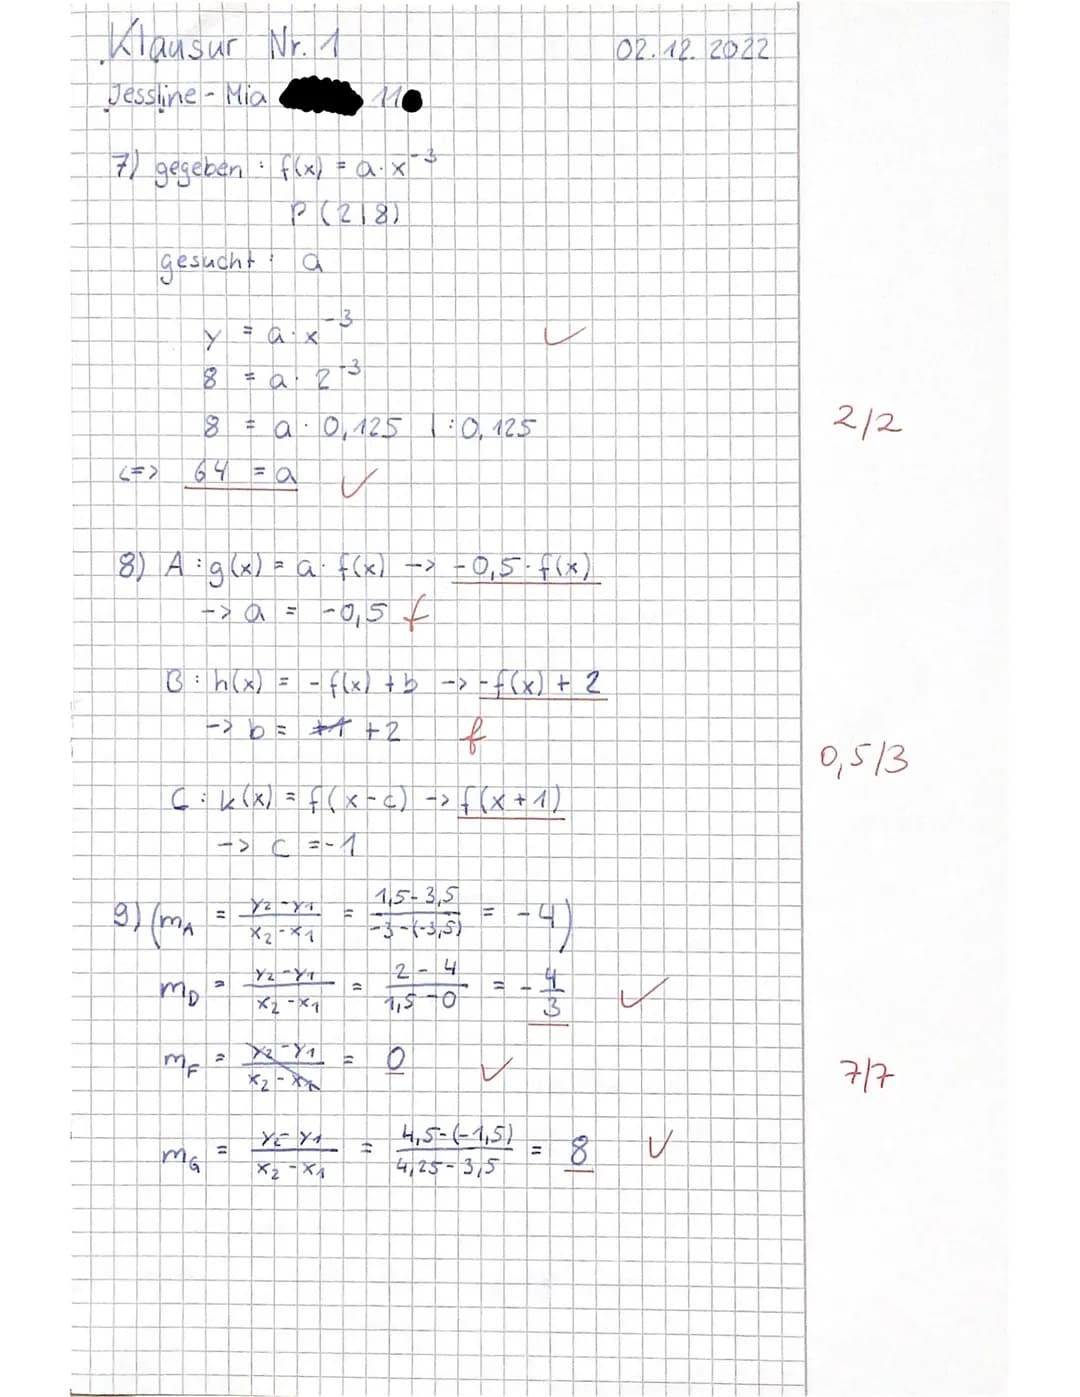 Klausur Nr. 1 02.12.2022
Jessline-Mia 11
7) gegeben : f(x) = a·x⁻³
P (2|8)
gesucht : a
y = a·x⁻³ ✓
8 = a· 2⁻³
8 = a · 0,125 | :0,125 2/2
<=> 64 = a ✓
8) A : g(x) = a· f(x) -> -0,5·f(x)
-> a = -0,5 f
B : h(x) = -f(x) +b -> -f(x) + 2
-> b = +2 f
0,5/3
C : k(x) = f(x-c) -> f(x+1)
-> c = -1
9) (m_A = (y₂-y₁)/(x₂-x₁) = (1,5-3,5)/(-3-(-3,5)) = -4)
m_D = (y₂-y₁)/(x₂-x₁) = (2-4)/(1,5-0) = -4/3 ✓
m_F = (y₂-y₁)/(x₂-x₁) = 0 ✓ 7/7
m_G = (y₂-y₁)/(x₂-x₁) = (4,5-(-1,5))/(4,25-3,5) = 8 ✓